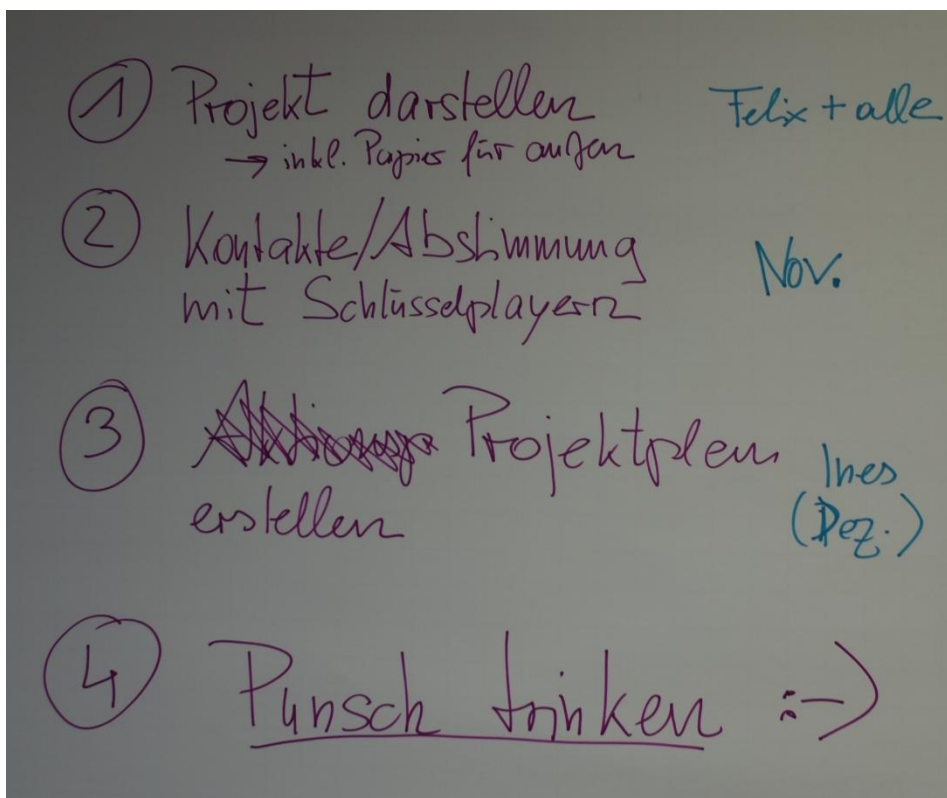 ① Projekt darstellen Felix + alle
→ inkl. Papier für außen
② Kontakte/Abstimmung Nov.
mit Schlüsselplayern
③ Projektplan Ines
erstellen (Dez.)
④ Punsch trinken :-)